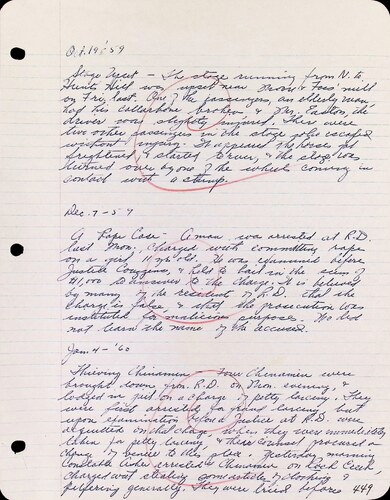 Oct 19 '59
Stage Upset - The stage running from N. to
Hunts Hill was upset near Moore & Foss' mill
on Fri. last. One of the passengers, an elderly man
had his collarbone broken, & Mr. Easton, the
driver was slightly injured. There were
two other passengers in the stage who escaped
without injury. It appeared the horses got
frightened & started to run, & the stage was
turned over by one of the wheels coming in
contact with a stump.
Dec. 7 - 59
A Rape Case - A man was arrested at R.D.
last Mon. charged with committing rape
on a girl 11 yr. old. He was examined before
Justice Cousins, & held to bail in the sum of
$1,000 to answer to the charge. It is believed
by many of the residents of R.D. that the
charge is false, & that the prosecution was
instituted for malicious purposes. We did
not learn the name of the accused.
Jan. 4 - '60
Thieving Chinamen - Four Chinamen were
brought down from R.D. on Mon. evening, &
lodged in jail on a charge of petty larceny. They
were first arrested for grand larceny but
upon examination before a justice at R.D. were
acquitted on that charge, when they were immediately
taken for petty larceny & their counsel procured a
change of venue to this place. Yesterday morning
Constable arrested a Chinaman on Creek
charged with stealing some articles of clothing &
pilfering generally. They were tried before
449